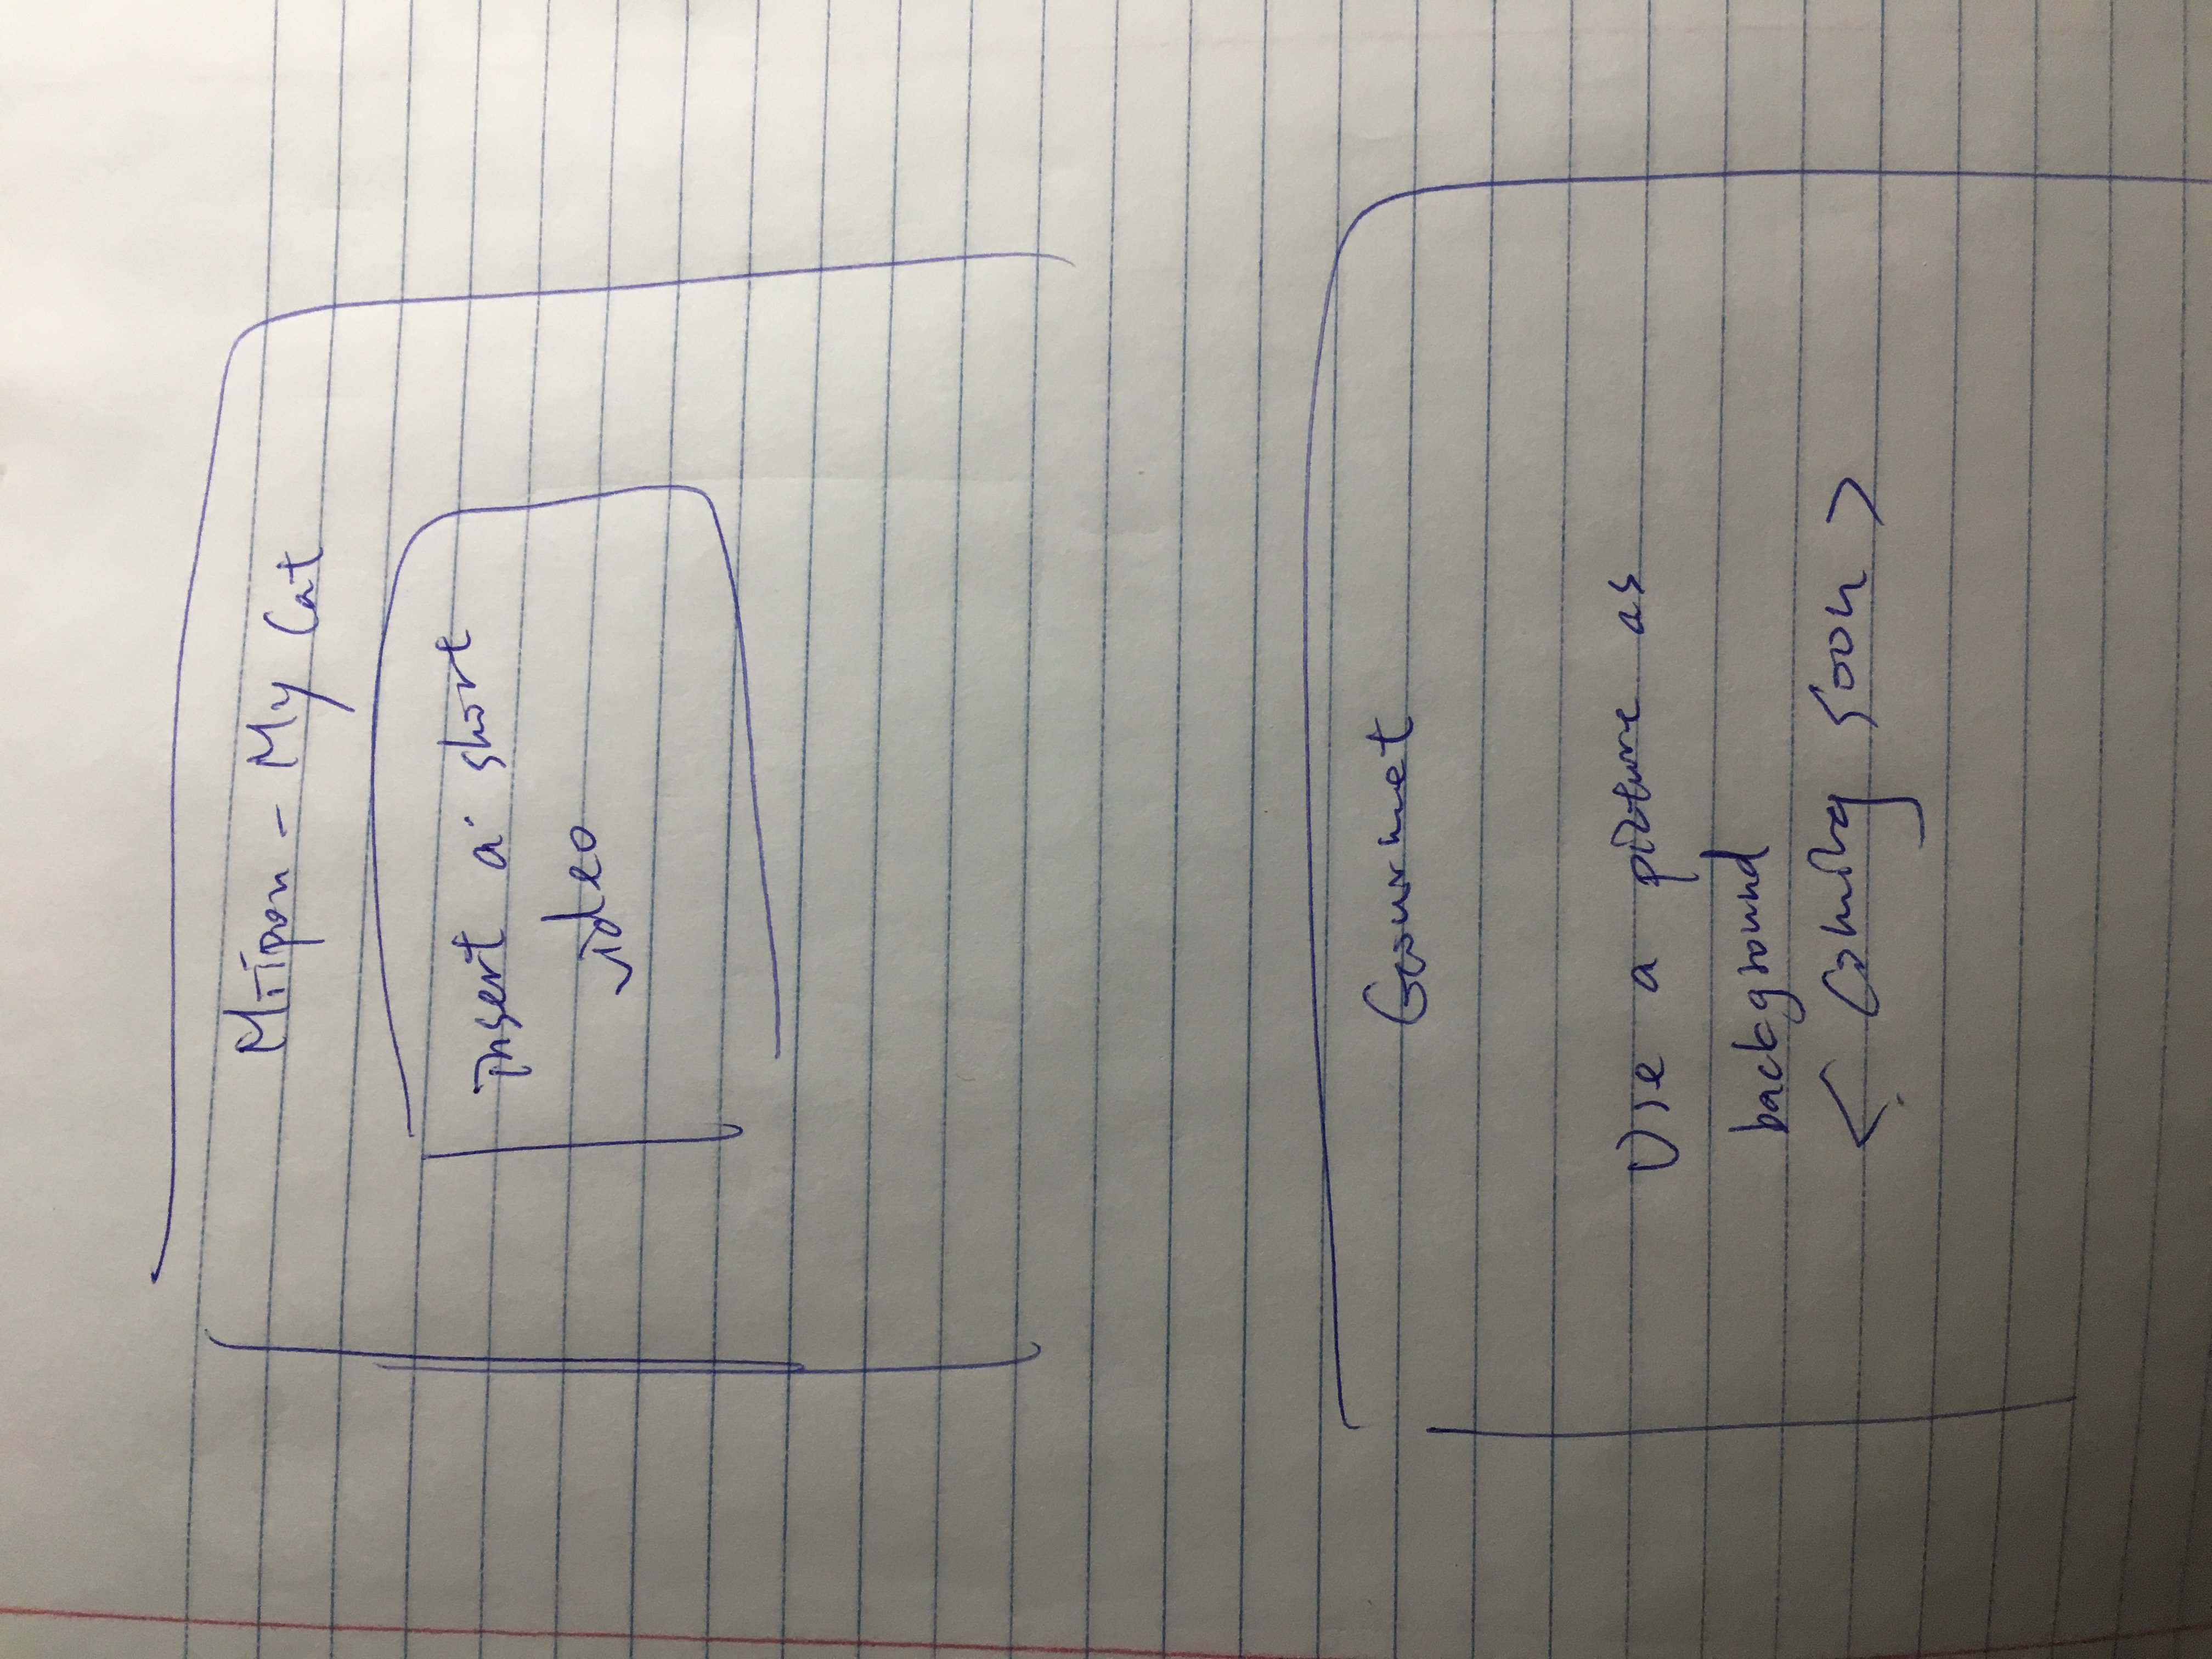 Mripon - My Cat
insert a short
video
Gourmet
Use a picture as
background
< Coming Soon >